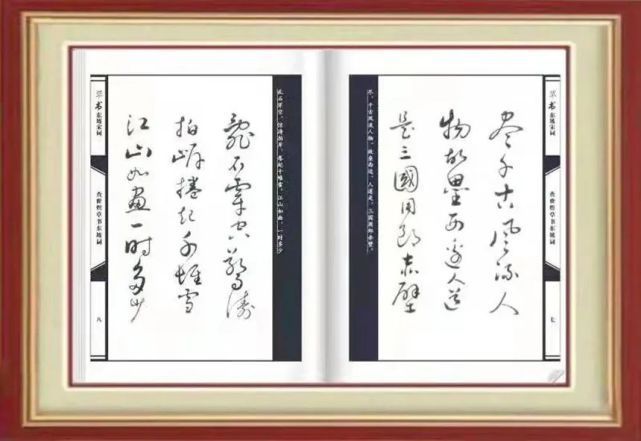 草书 东坡宋词
草书东坡词
七
盡千古風流人
物故壘西邊人道
是三國周郎赤壁
尽，千古风流人物。故垒西边，人道是，三国周郎赤壁。
乱石穿空，惊涛拍岸，卷起千堆雪。江山如画，一时多少
亂石穿空驚濤
拍岸捲起千堆雪
江山如畫一时多少
草书 东坡宋词
草书东坡词
八